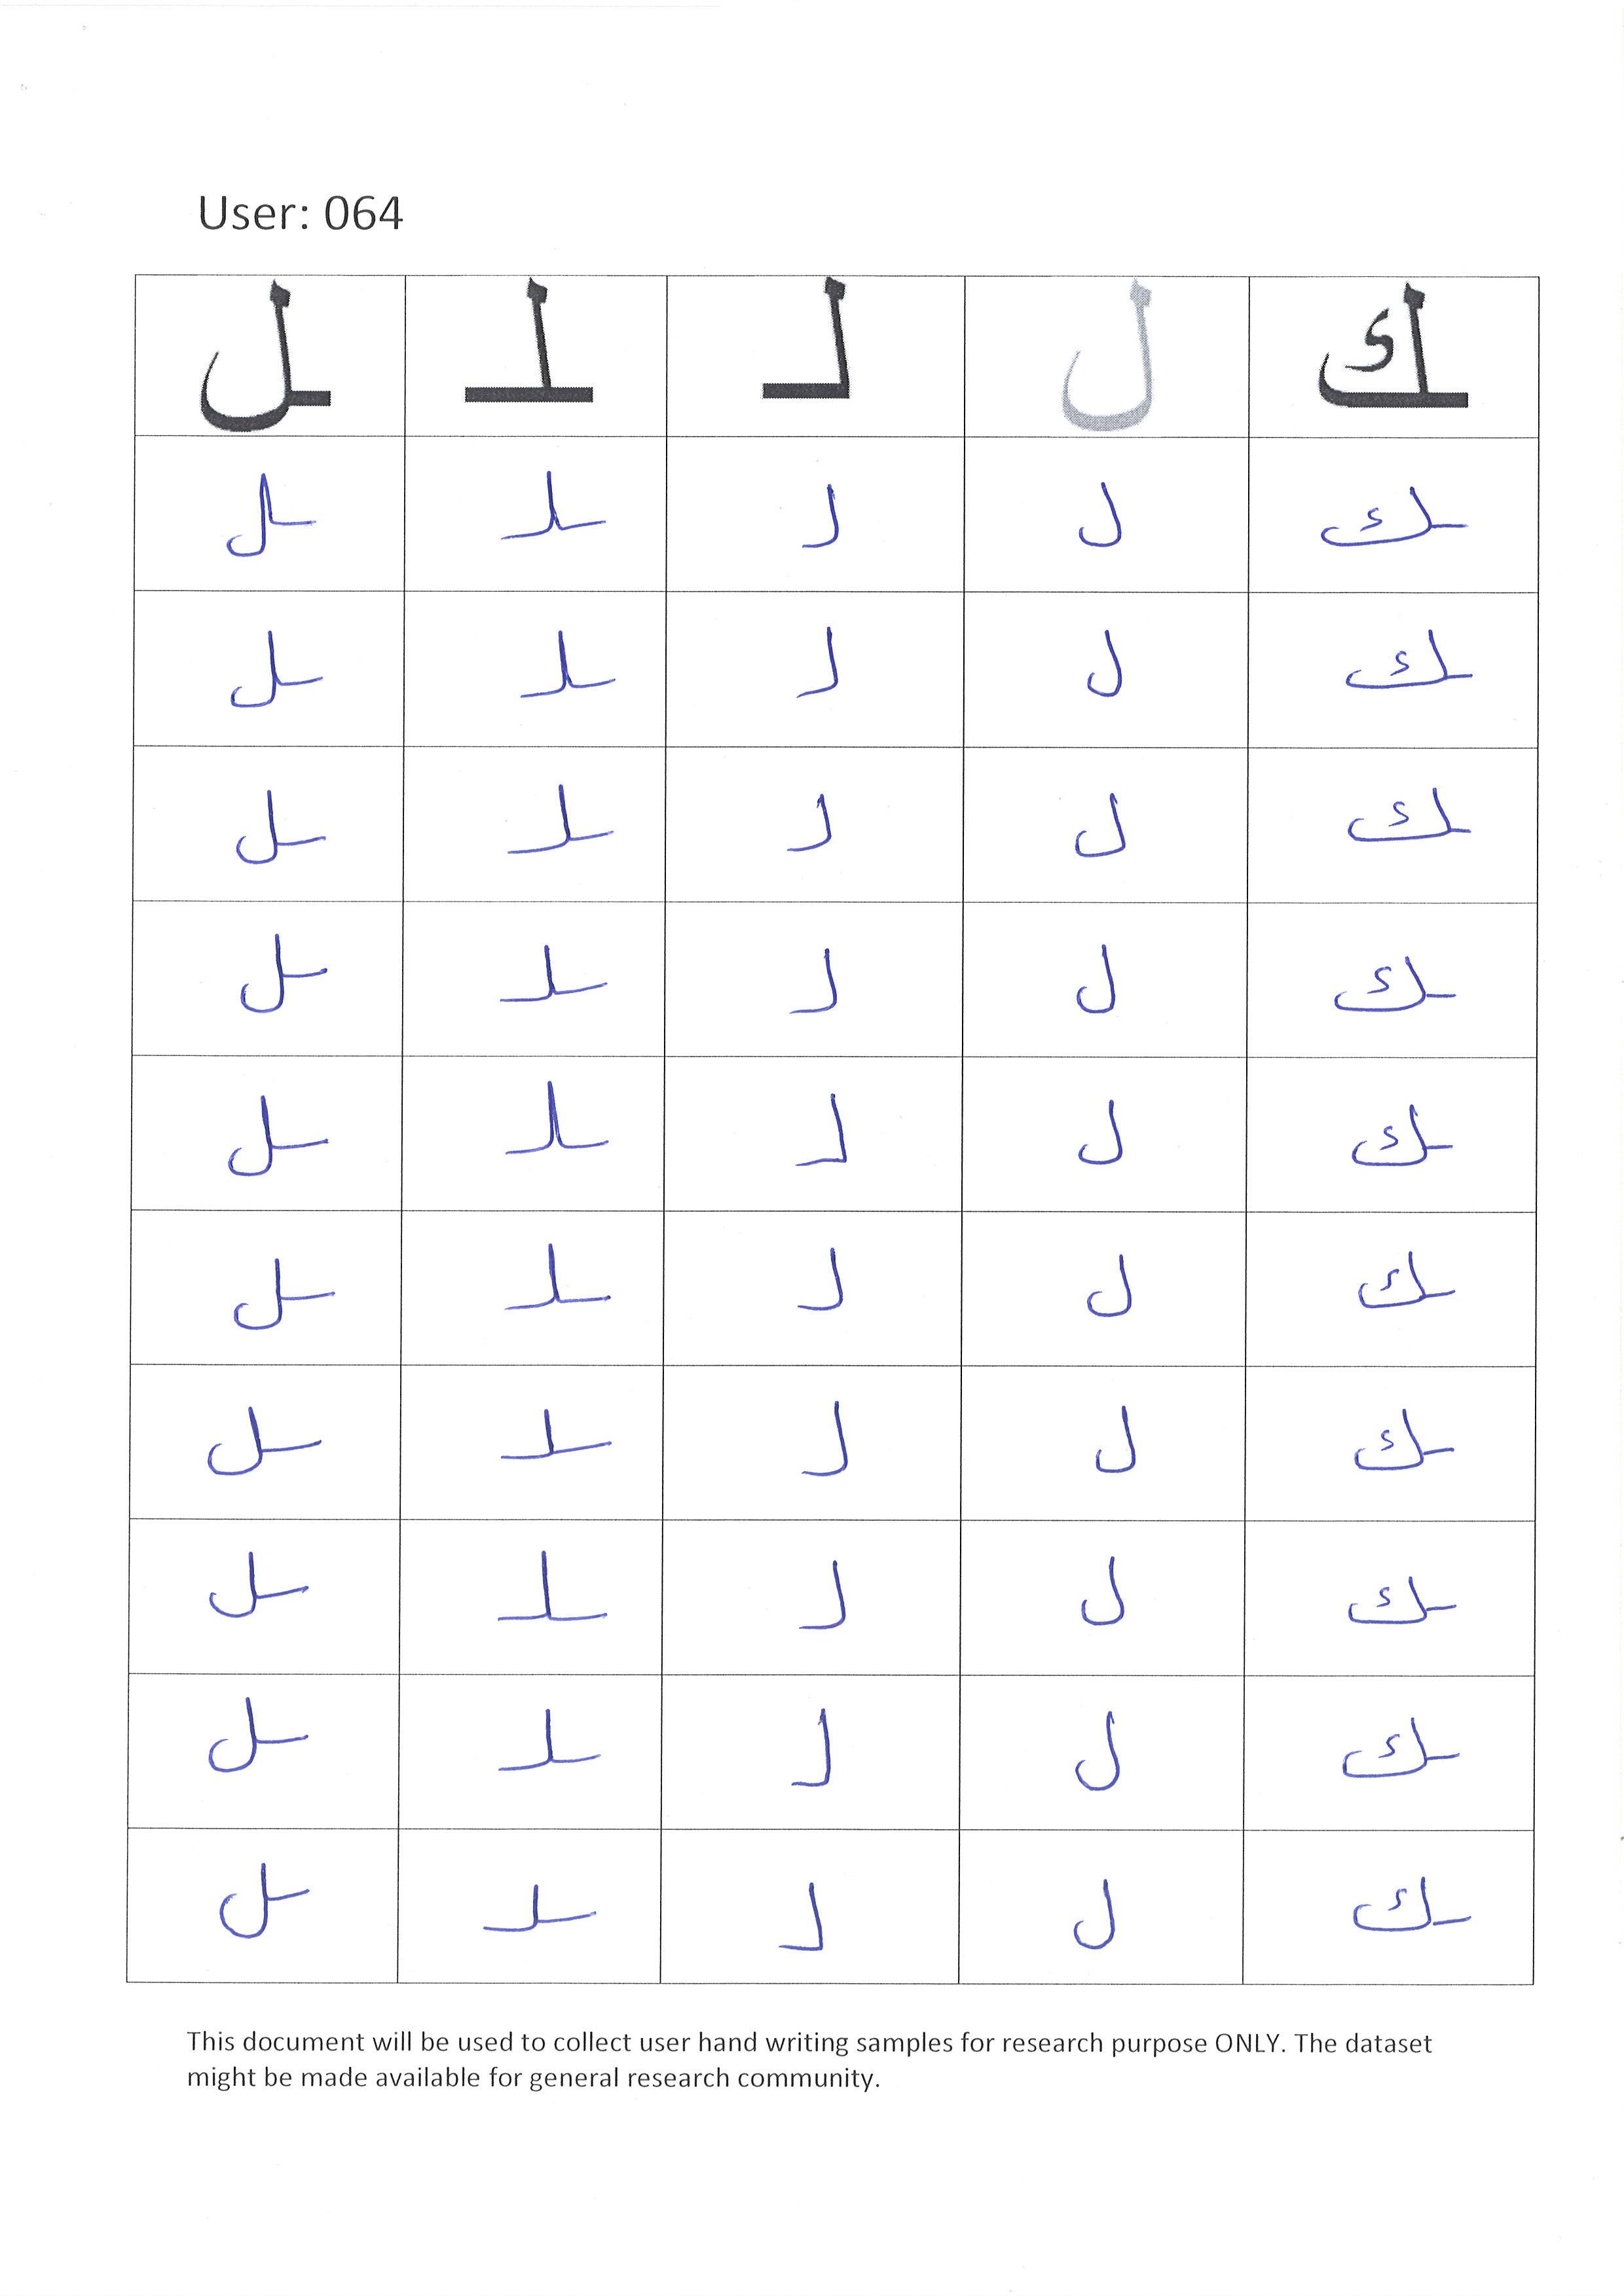 User: 064
ـل ـلـ لـ ل ـك
ـل ـلـ لـ ل ـك
ـل ـلـ لـ ل ـك
ـل ـلـ لـ ل ـك
ـل ـلـ لـ ل ـك
ـل ـلـ لـ ل ـك
ـل ـلـ لـ ل ـك
ـل ـلـ لـ ل ـك
ـل ـلـ لـ ل ـك
ـل ـلـ لـ ل ـك
ـل ـلـ لـ ل ـك
This document will be used to collect user hand writing samples for research purpose ONLY. The dataset
might be made available for general research community.